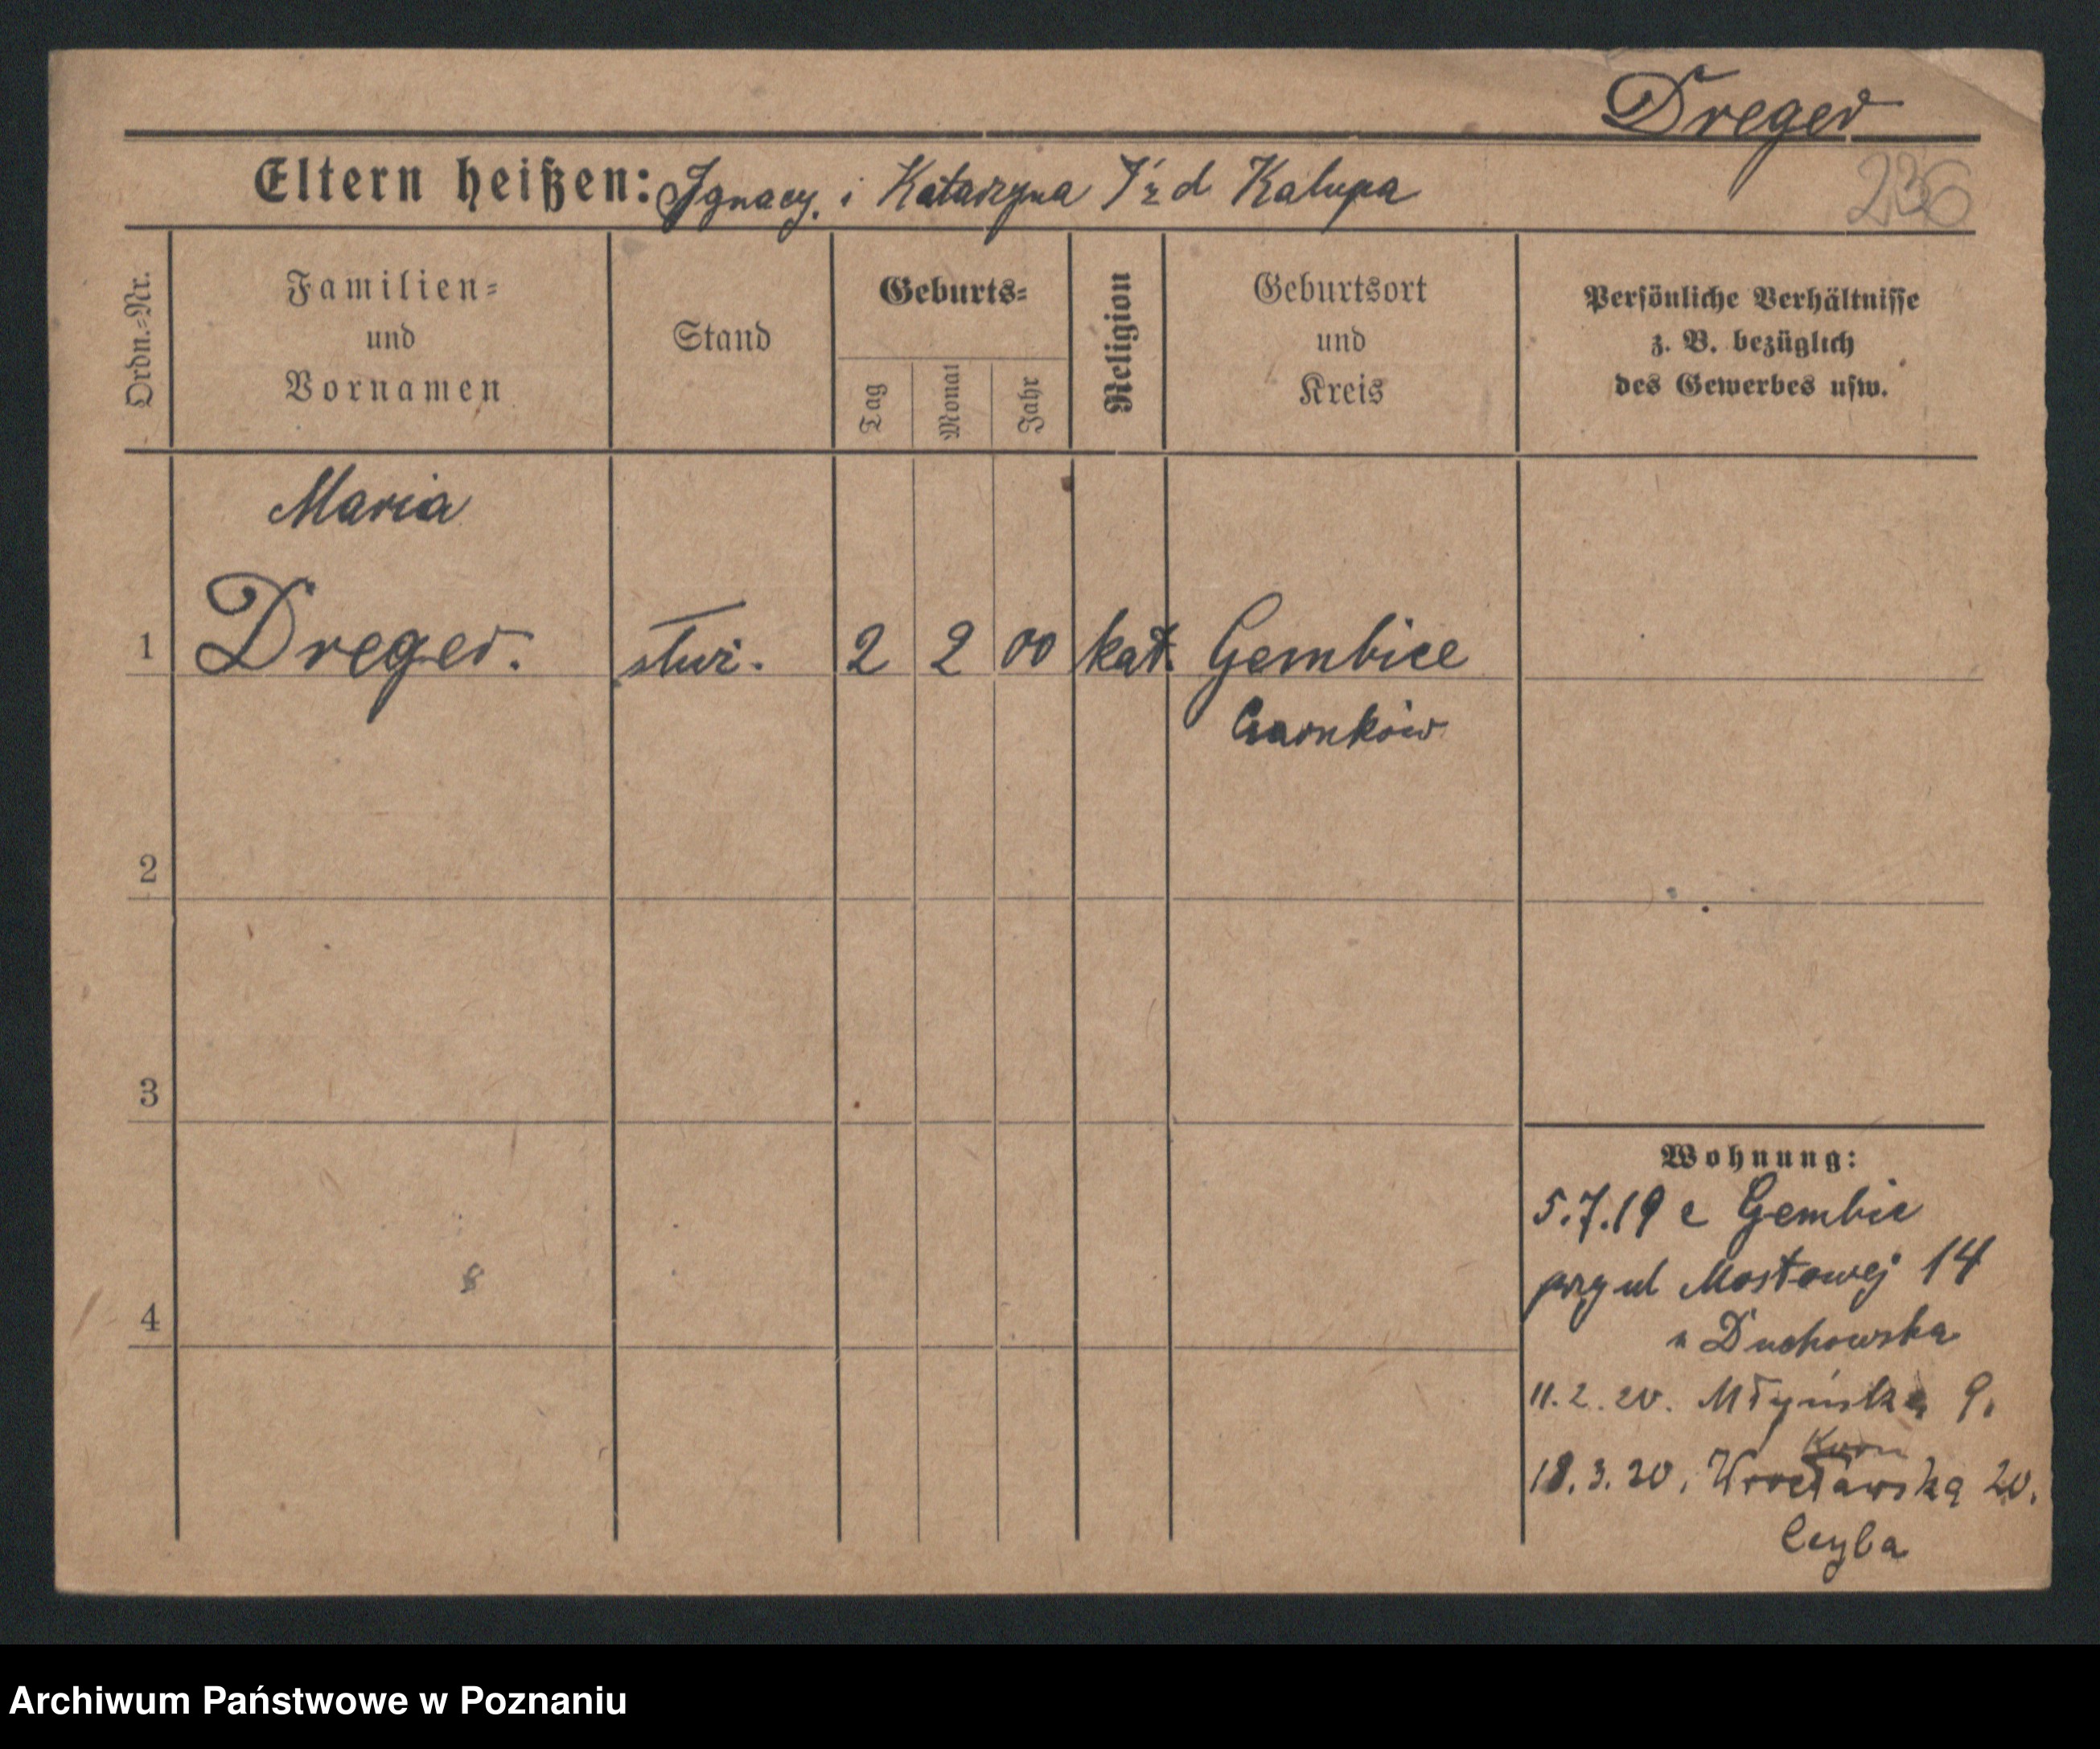 Dreger
Eltern heißen: Ignacy i Katarzyna z d Kalupa
236
Ordn.-Nr.
Familien-
und
Vornamen
Stand
Geburts-
Tag
Monat
Jahr
Religion
Geburtsort
und
Kreis
Persönliche Verhältnisse
z. B. bezüglich
des Gewerbes usw.
Maria
1 Dreger. służ. 2 2 00 kat. Gembice
Czarnków
2
3
4
Wohnung:
5.7.19 z Gembic
przy ul Mostowej 14
u Duchowska
11.2.20. Młyńska 9.
18.3.20. Wrocławska 20.
Ceyba
Archiwum Państwowe w Poznaniu